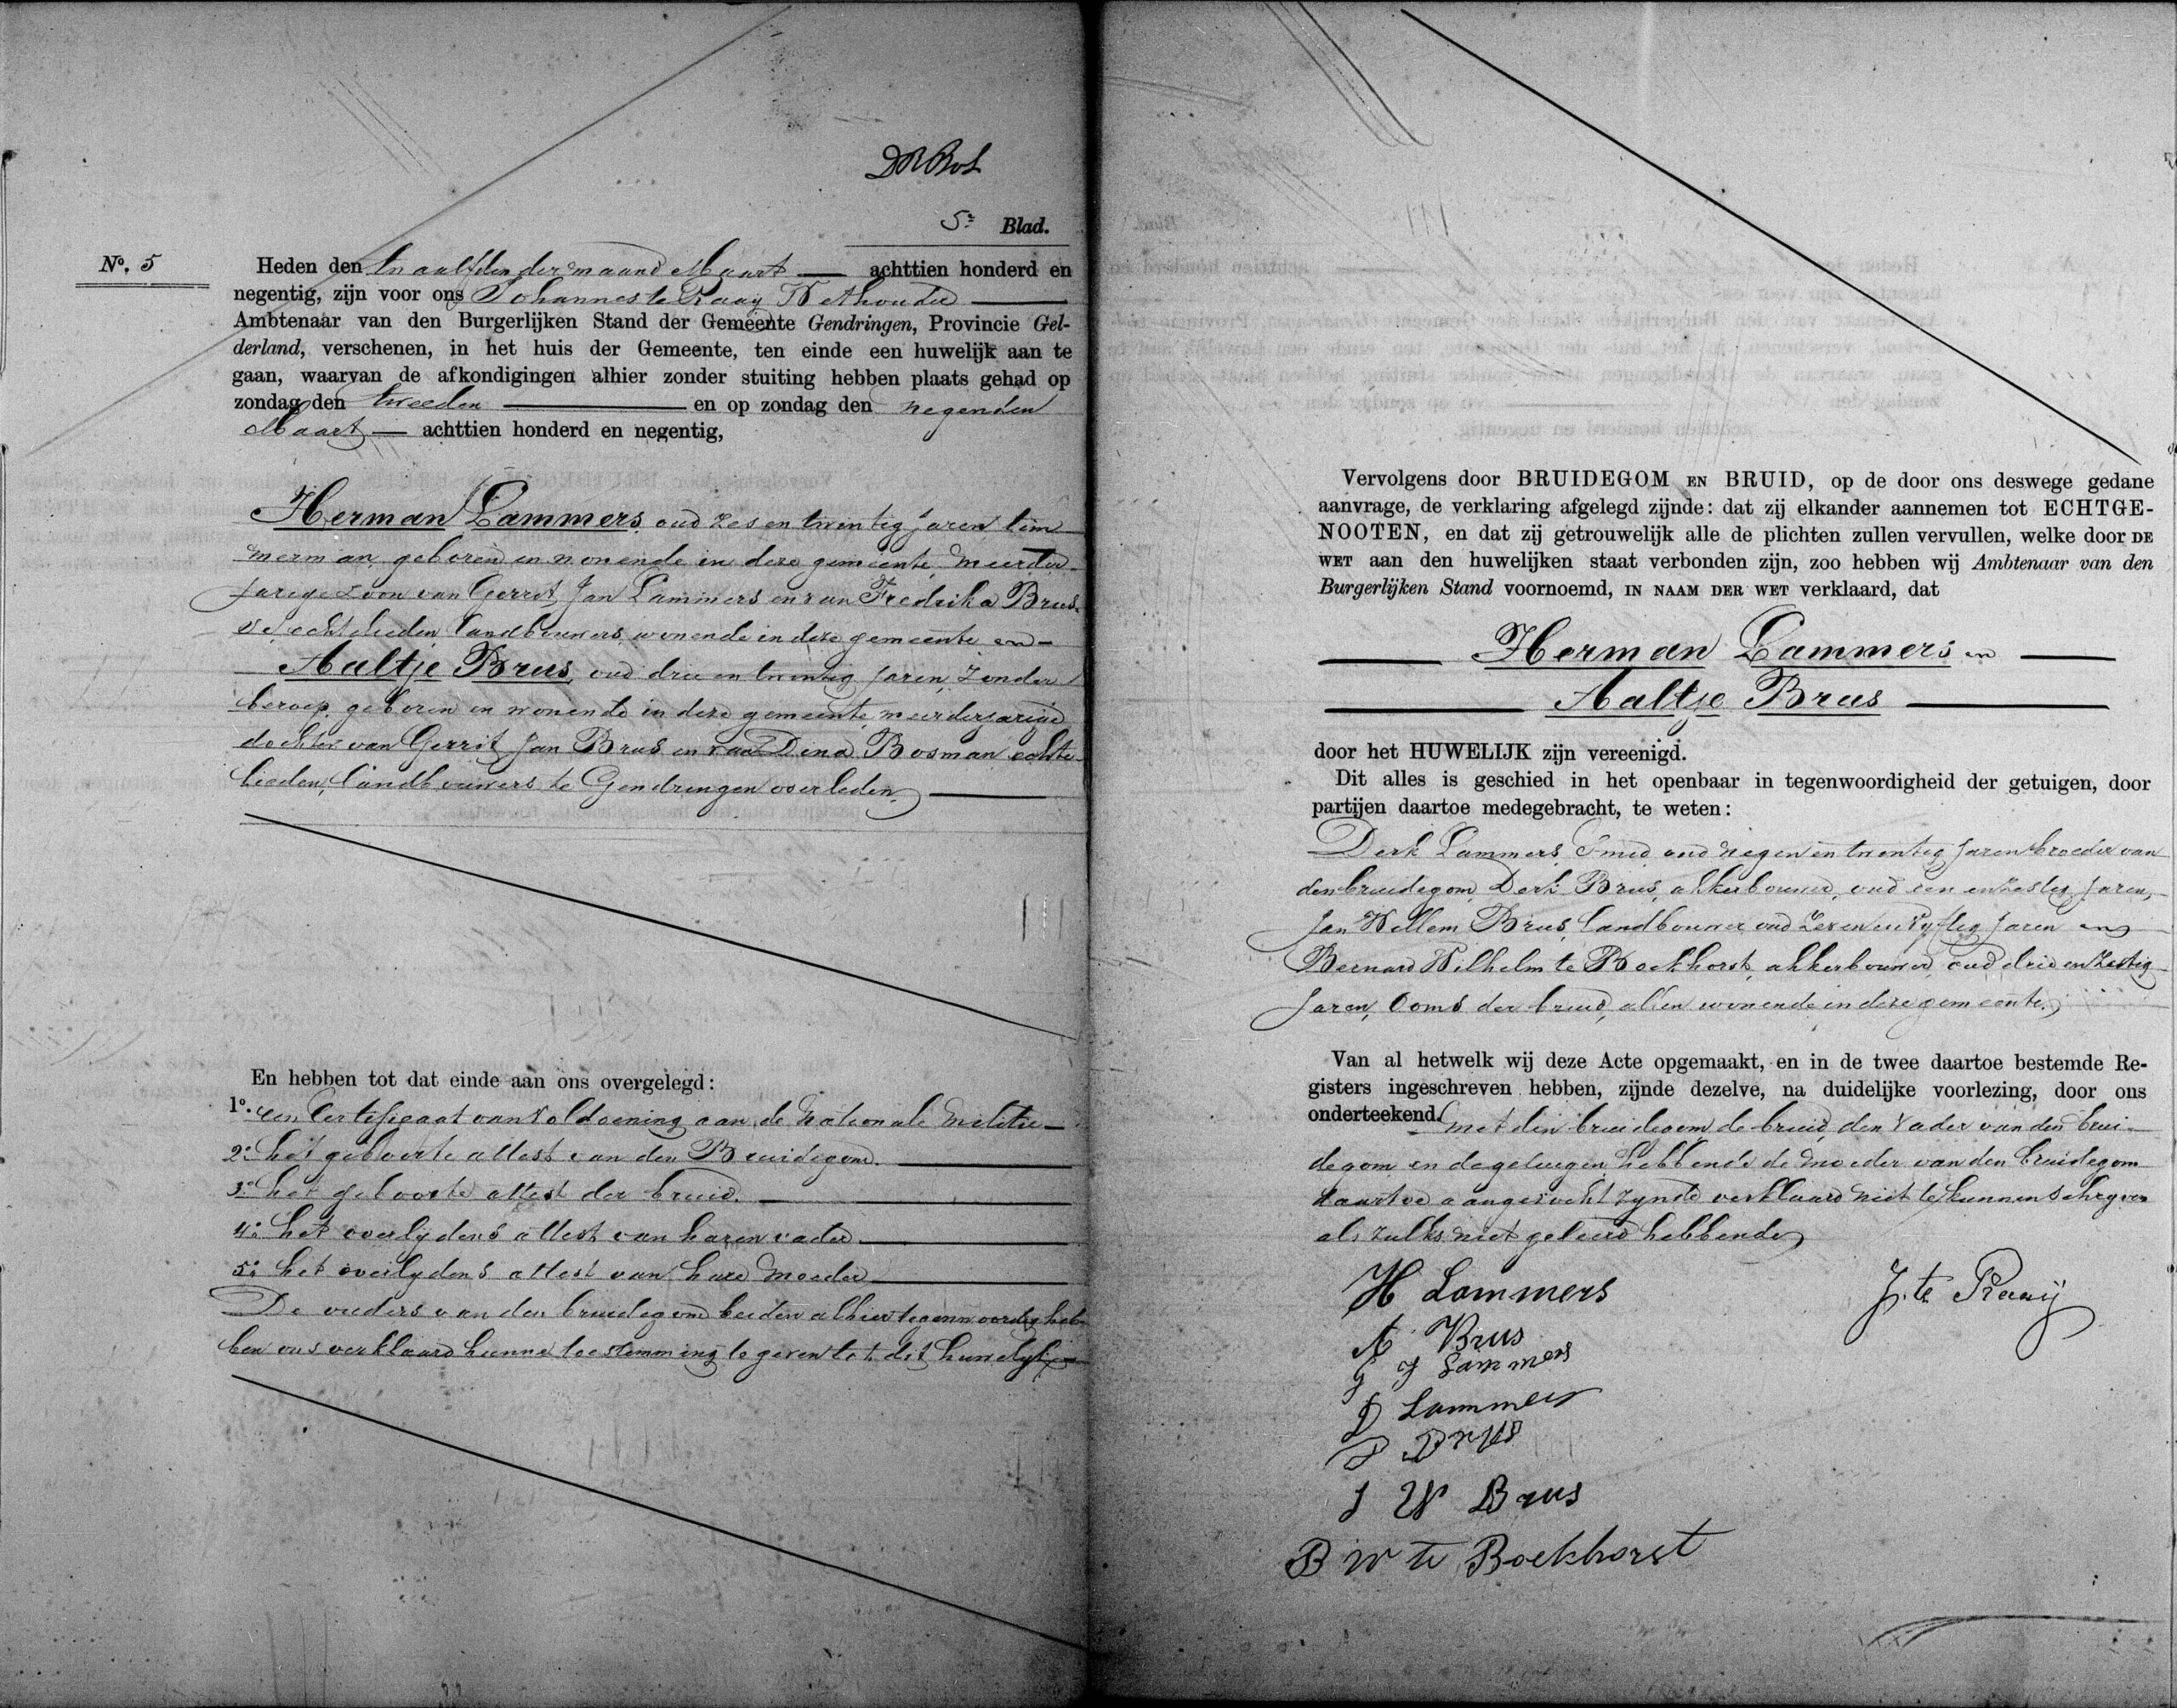 5e Blad.
No. 5
Heden den twaalfden der maand Maart achttien honderd en
negentig, zijn voor ons Johannes te Raaij Wethouder
Ambtenaar van den Burgerlijken Stand der Gemeente Gendringen, Provincie Gel-
derland, verschenen, in het huis der Gemeente, ten einde een huwelijk aan te
gaan, waarvan de afkondigingen alhier zonder stuiting hebben plaats gehad op
zondag den tweeden en op zondag den negenden
Maart achttien honderd en negentig,
Herman Lammers, oud zes en twintig jaren, tim
merman, geboren en wonende in deze gemeente, meerder-
jarige zoon van Gerrit Jan Lammers en van Fredrika Brus,
echtelieden landbouwers, wonende in deze gemeente en
Aaltje Brus, oud drie en twintig jaren, zonder
beroep, geboren en wonende in deze gemeente, meerderjarige
dochter van Gerrit Jan Brus en van Dina Bosman echte-
lieden, landbouwers te Gendringen overleden.
En hebben tot dat einde aan ons overgelegd:
1o. een Certificaat van voldoening aan de Nationale Militie
2o. het geboorte attest van den Bruidegom.
3o. het geboorte attest der bruid.
4o. het overlydens attest van haren vader
5o. het overlydens attest van hare moeder
De ouders van den bruidegom beiden alhier tegenwoordig heb-
ben ons verklaard hunne toestemming te geven tot dit huwelyk
Vervolgens door BRUIDEGOM EN BRUID, op de door ons deswege gedane
aanvrage, de verklaring afgelegd zijnde: dat zij elkander aannemen tot ECHTGE-
NOOTEN, en dat zij getrouwelijk alle de plichten zullen vervullen, welke door DE
WET aan den huwelijken staat verbonden zijn, zoo hebben wij Ambtenaar van den
Burgerlijken Stand voornoemd, IN NAAM DER WET verklaard, dat
Herman Lammers en
Aaltje Brus
door het HUWELIJK zijn vereenigd.
Dit alles is geschied in het openbaar in tegenwoordigheid der getuigen, door
partijen daartoe medegebracht, te weten:
Derk Lammers, Smid, oud negen en twentig jaren broeder van
den bruidegom, Derk Brus, akkerbouwer, oud een en zestig jaren,
Jan Willem Brus, landbouwer oud zeven en vyftig jaren en
Bernard Wilhelm te Boekhorst, akkerbouwer, oud drie en zestig
jaren, Ooms der bruid, allen wonende in deze gemeente.
Van al hetwelk wij deze Acte opgemaakt, en in de twee daartoe bestemde Re-
gisters ingeschreven hebben, zijnde dezelve, na duidelijke voorlezing, door ons
onderteekend met den bruidegom de bruid, den vader van den brui-
degom en de getuigen, hebbende de moeder van den bruidegom
daartoe aangezocht zynde verklaard niet te kunnen schryven
als zulks niet geleerd hebbende
H Lammers
J. te Raaij
A Brus
G J Lammers
D Lammers
D Brus
J W Brus
B W te Boekhorst